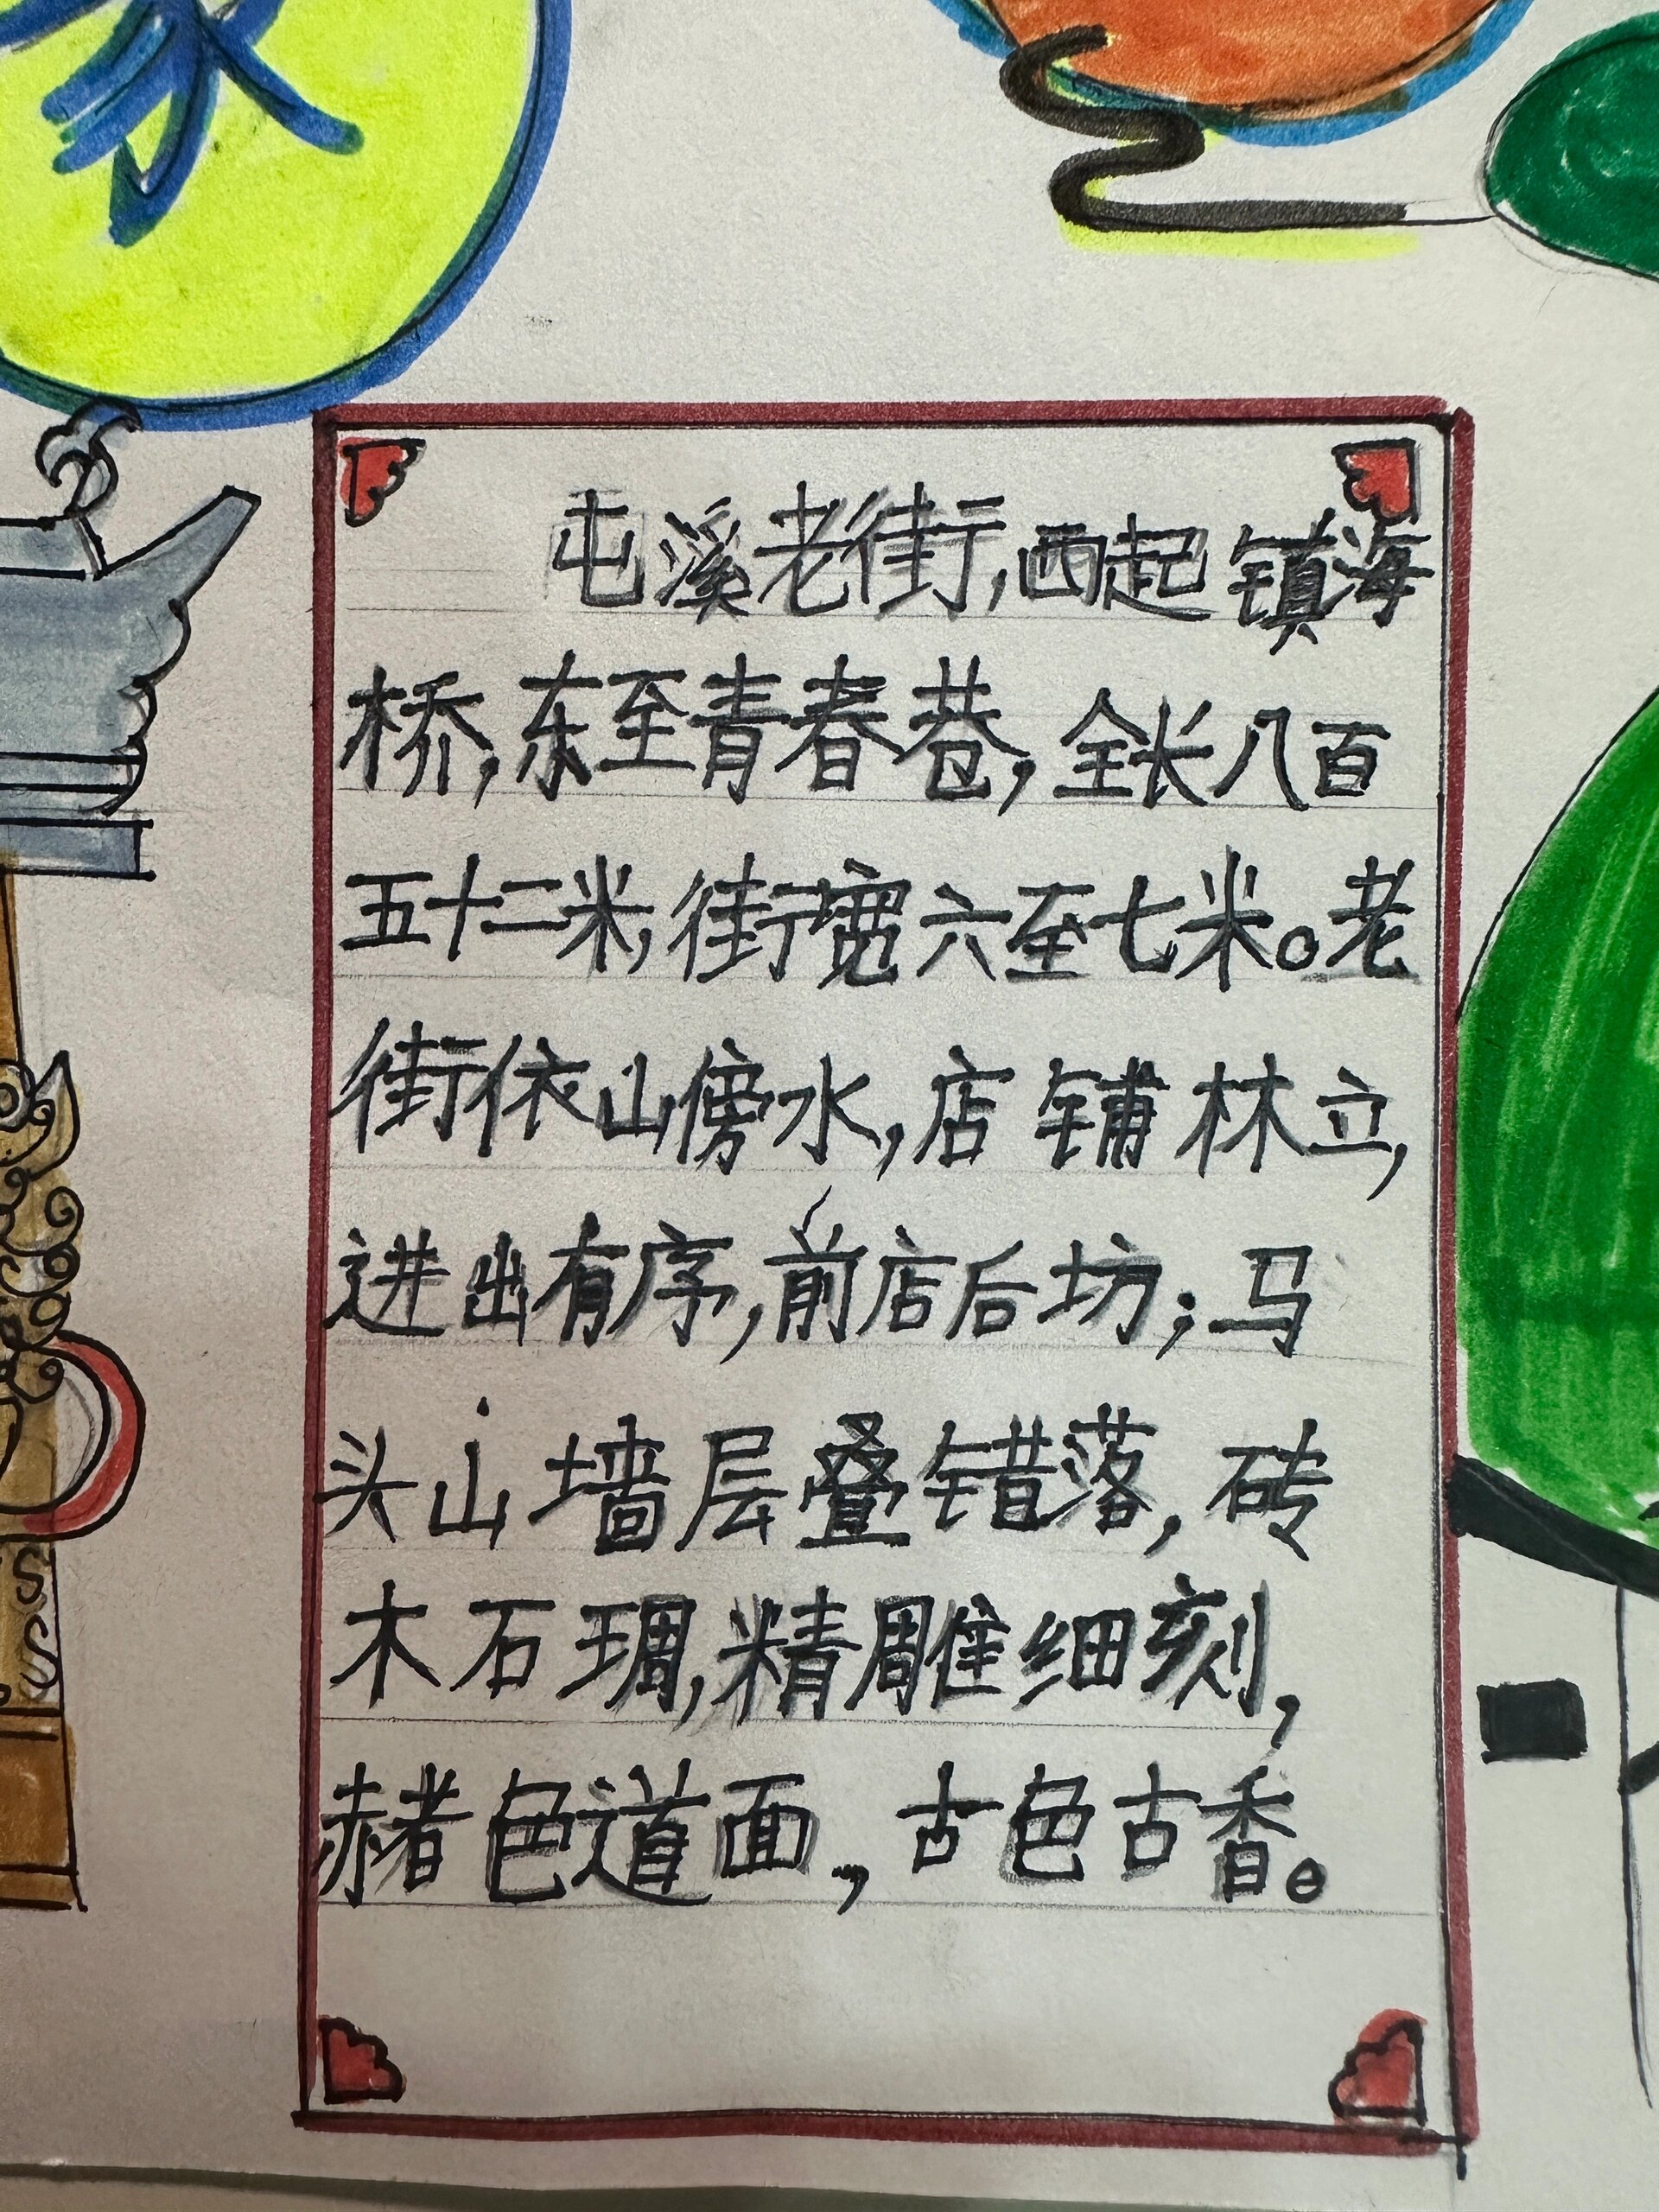 家
屯溪老街,西起镇海
桥,东至青春巷,全长八百
五十二米,街宽六至七米。老
街依山傍水,店铺林立,
进出有序,前店后坊;马
头山墙层叠错落,砖
木石琱,精雕细刻,
赭色道面,古色古香。